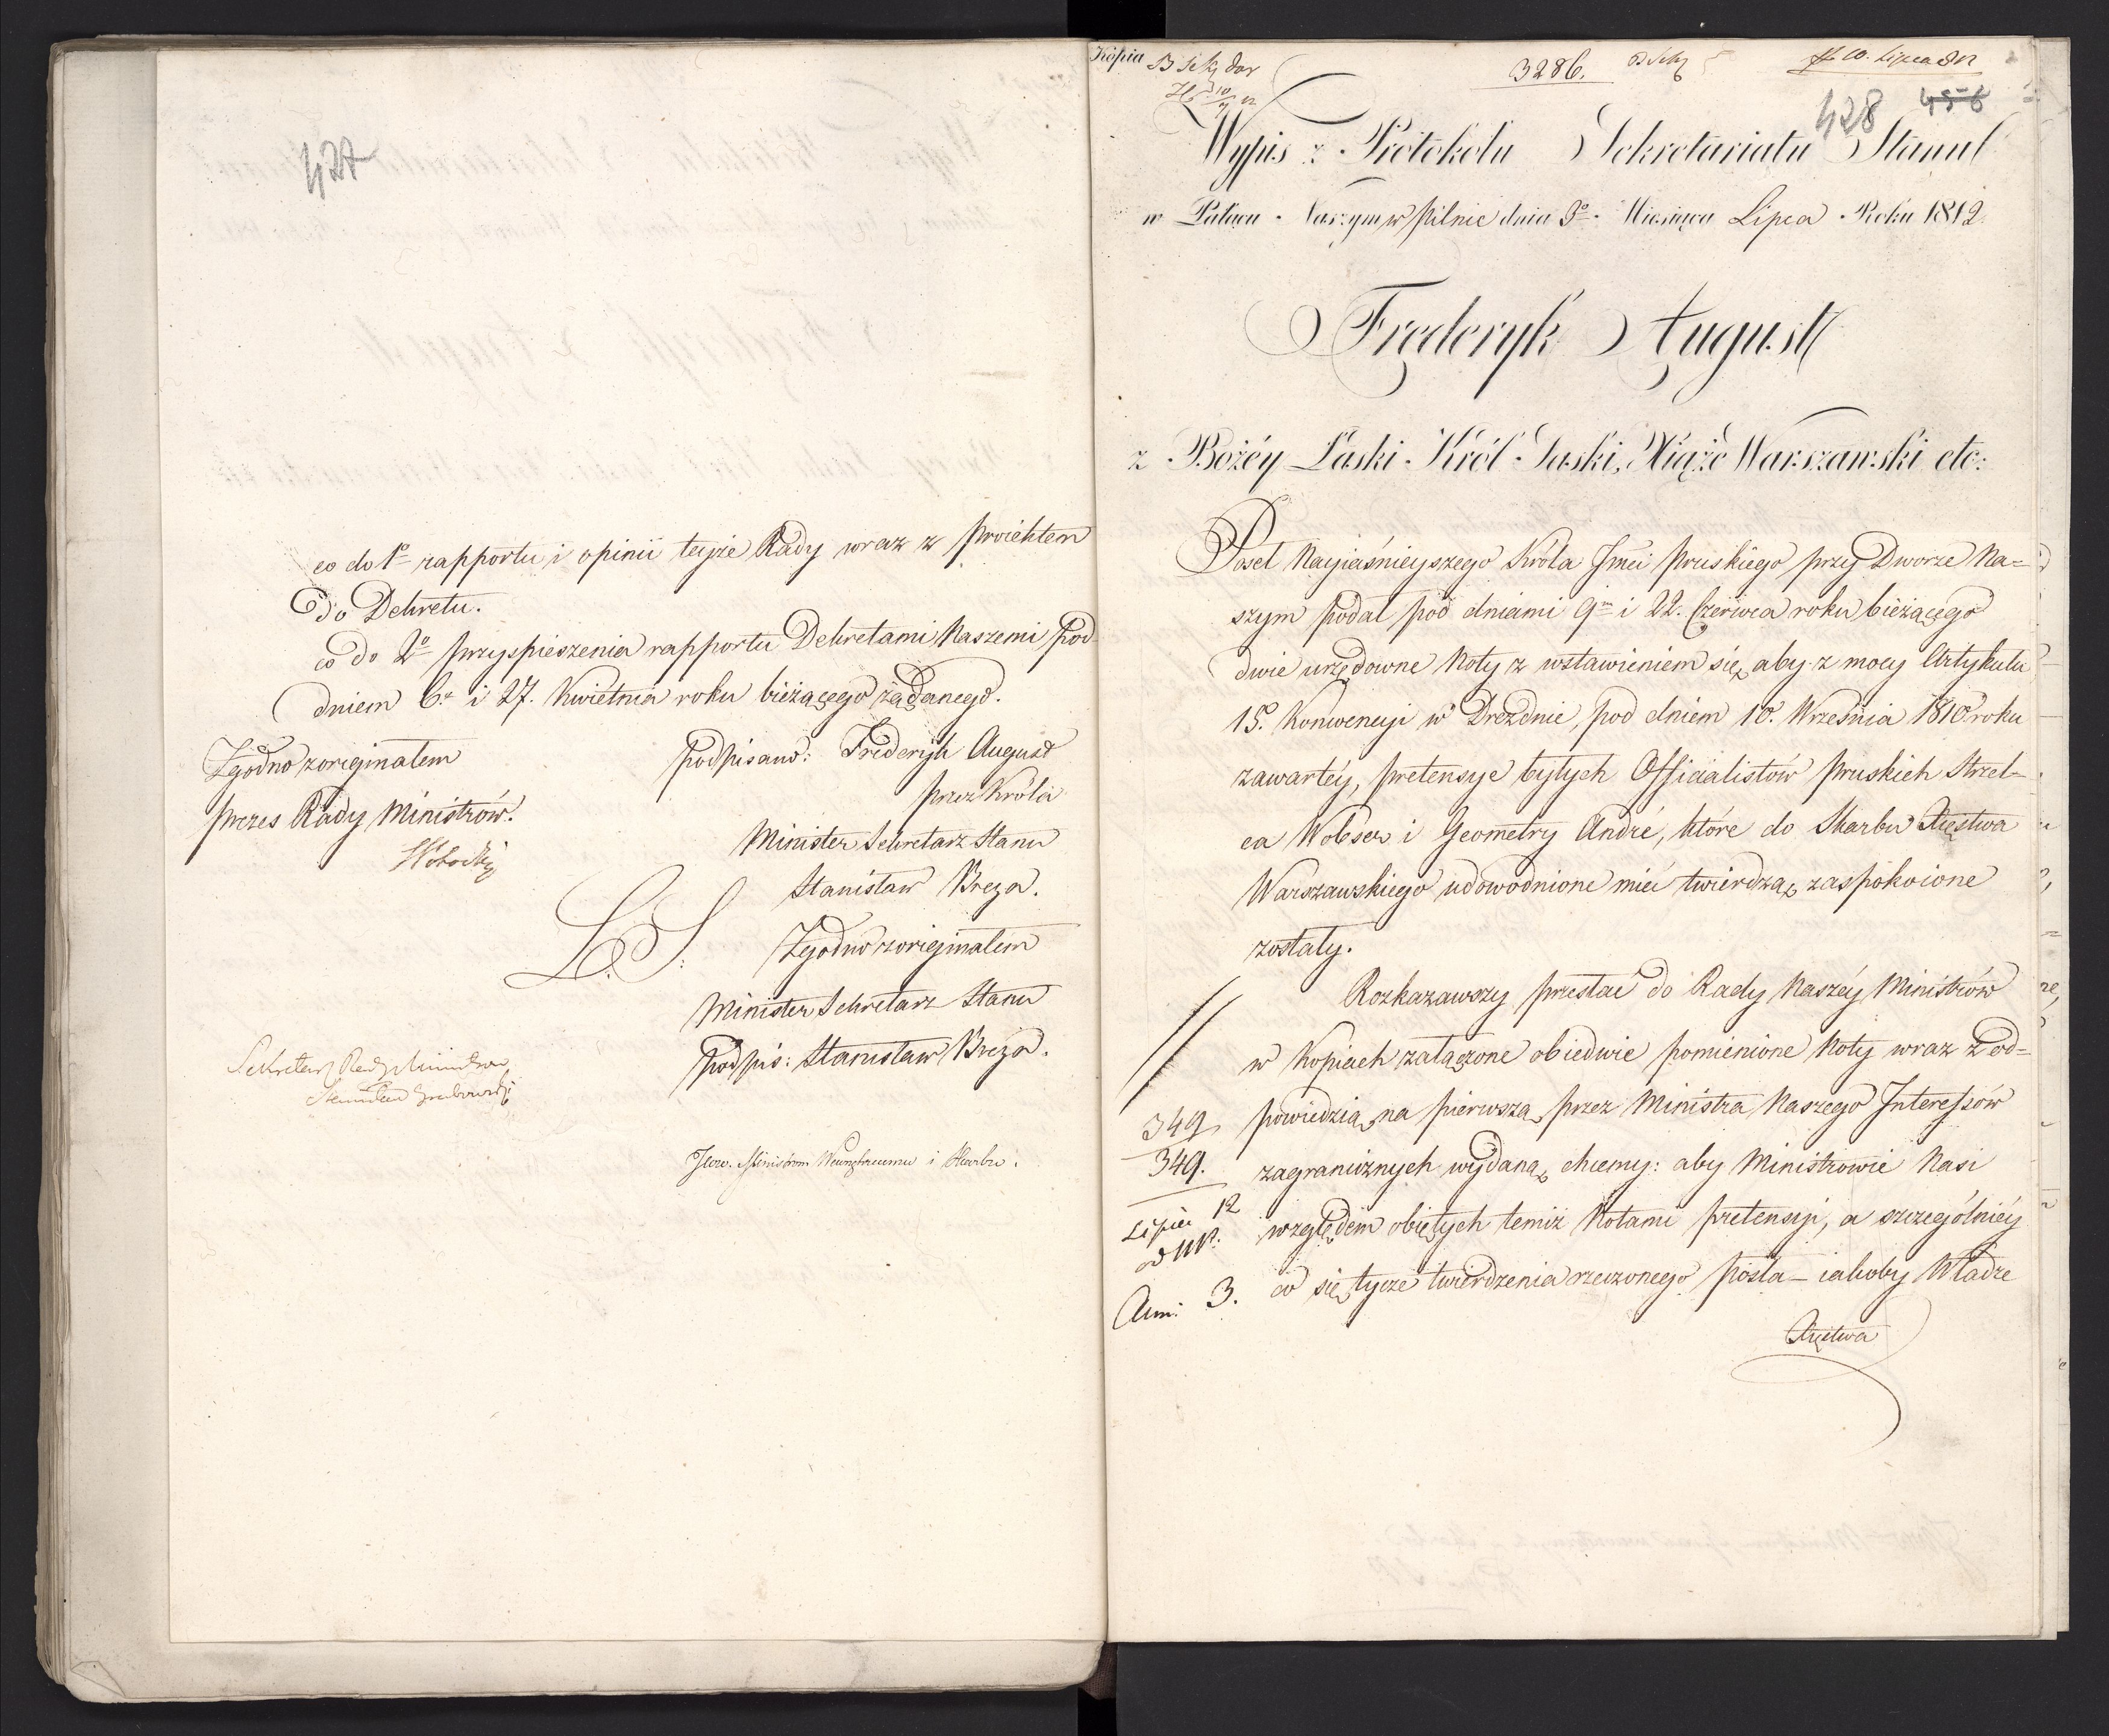 427
co do 1o rapportu i opinii teyże Rady wraz z proiektem
do Dekretu.
co do 2o przyspieszenia rapportu Dekretami Naszemi pod
dniem 6. i 27. Kwietnia roku bieżącego żądanego.
Zgodno z originałem
Prezes Rady Ministrów.
podpisano: Frideryk August
przez Króla
Minister Sekretarz Stanu
Stanisław Breza.
L. S.
Zgodno z originałem
Minister Sekretarz Stanu
podpis: Stanisław Breza.
Sekretarz Rady Ministrów
Stanisław Grabowski
JWW. Ministrom Wewnętrznemu i Skarbu.
Kopia
3286.
10. Lipca 812
428 456
Wypis z Protokołu Sekretariatu Stanu
w Pałacu Naszym w Pilnic dnia 3o Miesiąca Lipca Roku 1812
Frederyk August
z Bożéy Łaski Król Saski, Xiąże Warszawski etc:
Poseł Nayiaśnieyszego Króla Jmci Pruskiego przy Dworze Na=
szym podał pod dniami 9m i 22. Czerwca roku bieżącego
dwie urzędowne Noty z wstawieniem się, aby z mocy Artykułu
15o Konwencyi w Dreznie, pod dniem 10. Września 1810 roku
zawartéy, pretensye byłych Officialistów Pruskich Strzel=
ca Wobser i Geometry André, które do Skarbu Xięstwa
Warszawskiego udowodnione mieć twierdzą, zaspokoione
zostały.
Rozkazawszy przesłać do Rady Naszéy Ministrów
w Kopiach załączone obiedwie pomienione Noty wraz z od=
powiedzią na pierwszą, przez Ministra Naszego Interessów
zagranicznych wydaną, chcemy: aby Ministrowie Nasi
względem obiętych temiż Notami pretensyi, a szczególniéy
co się tycze twierdzenia rzeczonego Posła – iakoby Władze
Xięstwa
349
349.
Lipiec 12
Ann: 3.